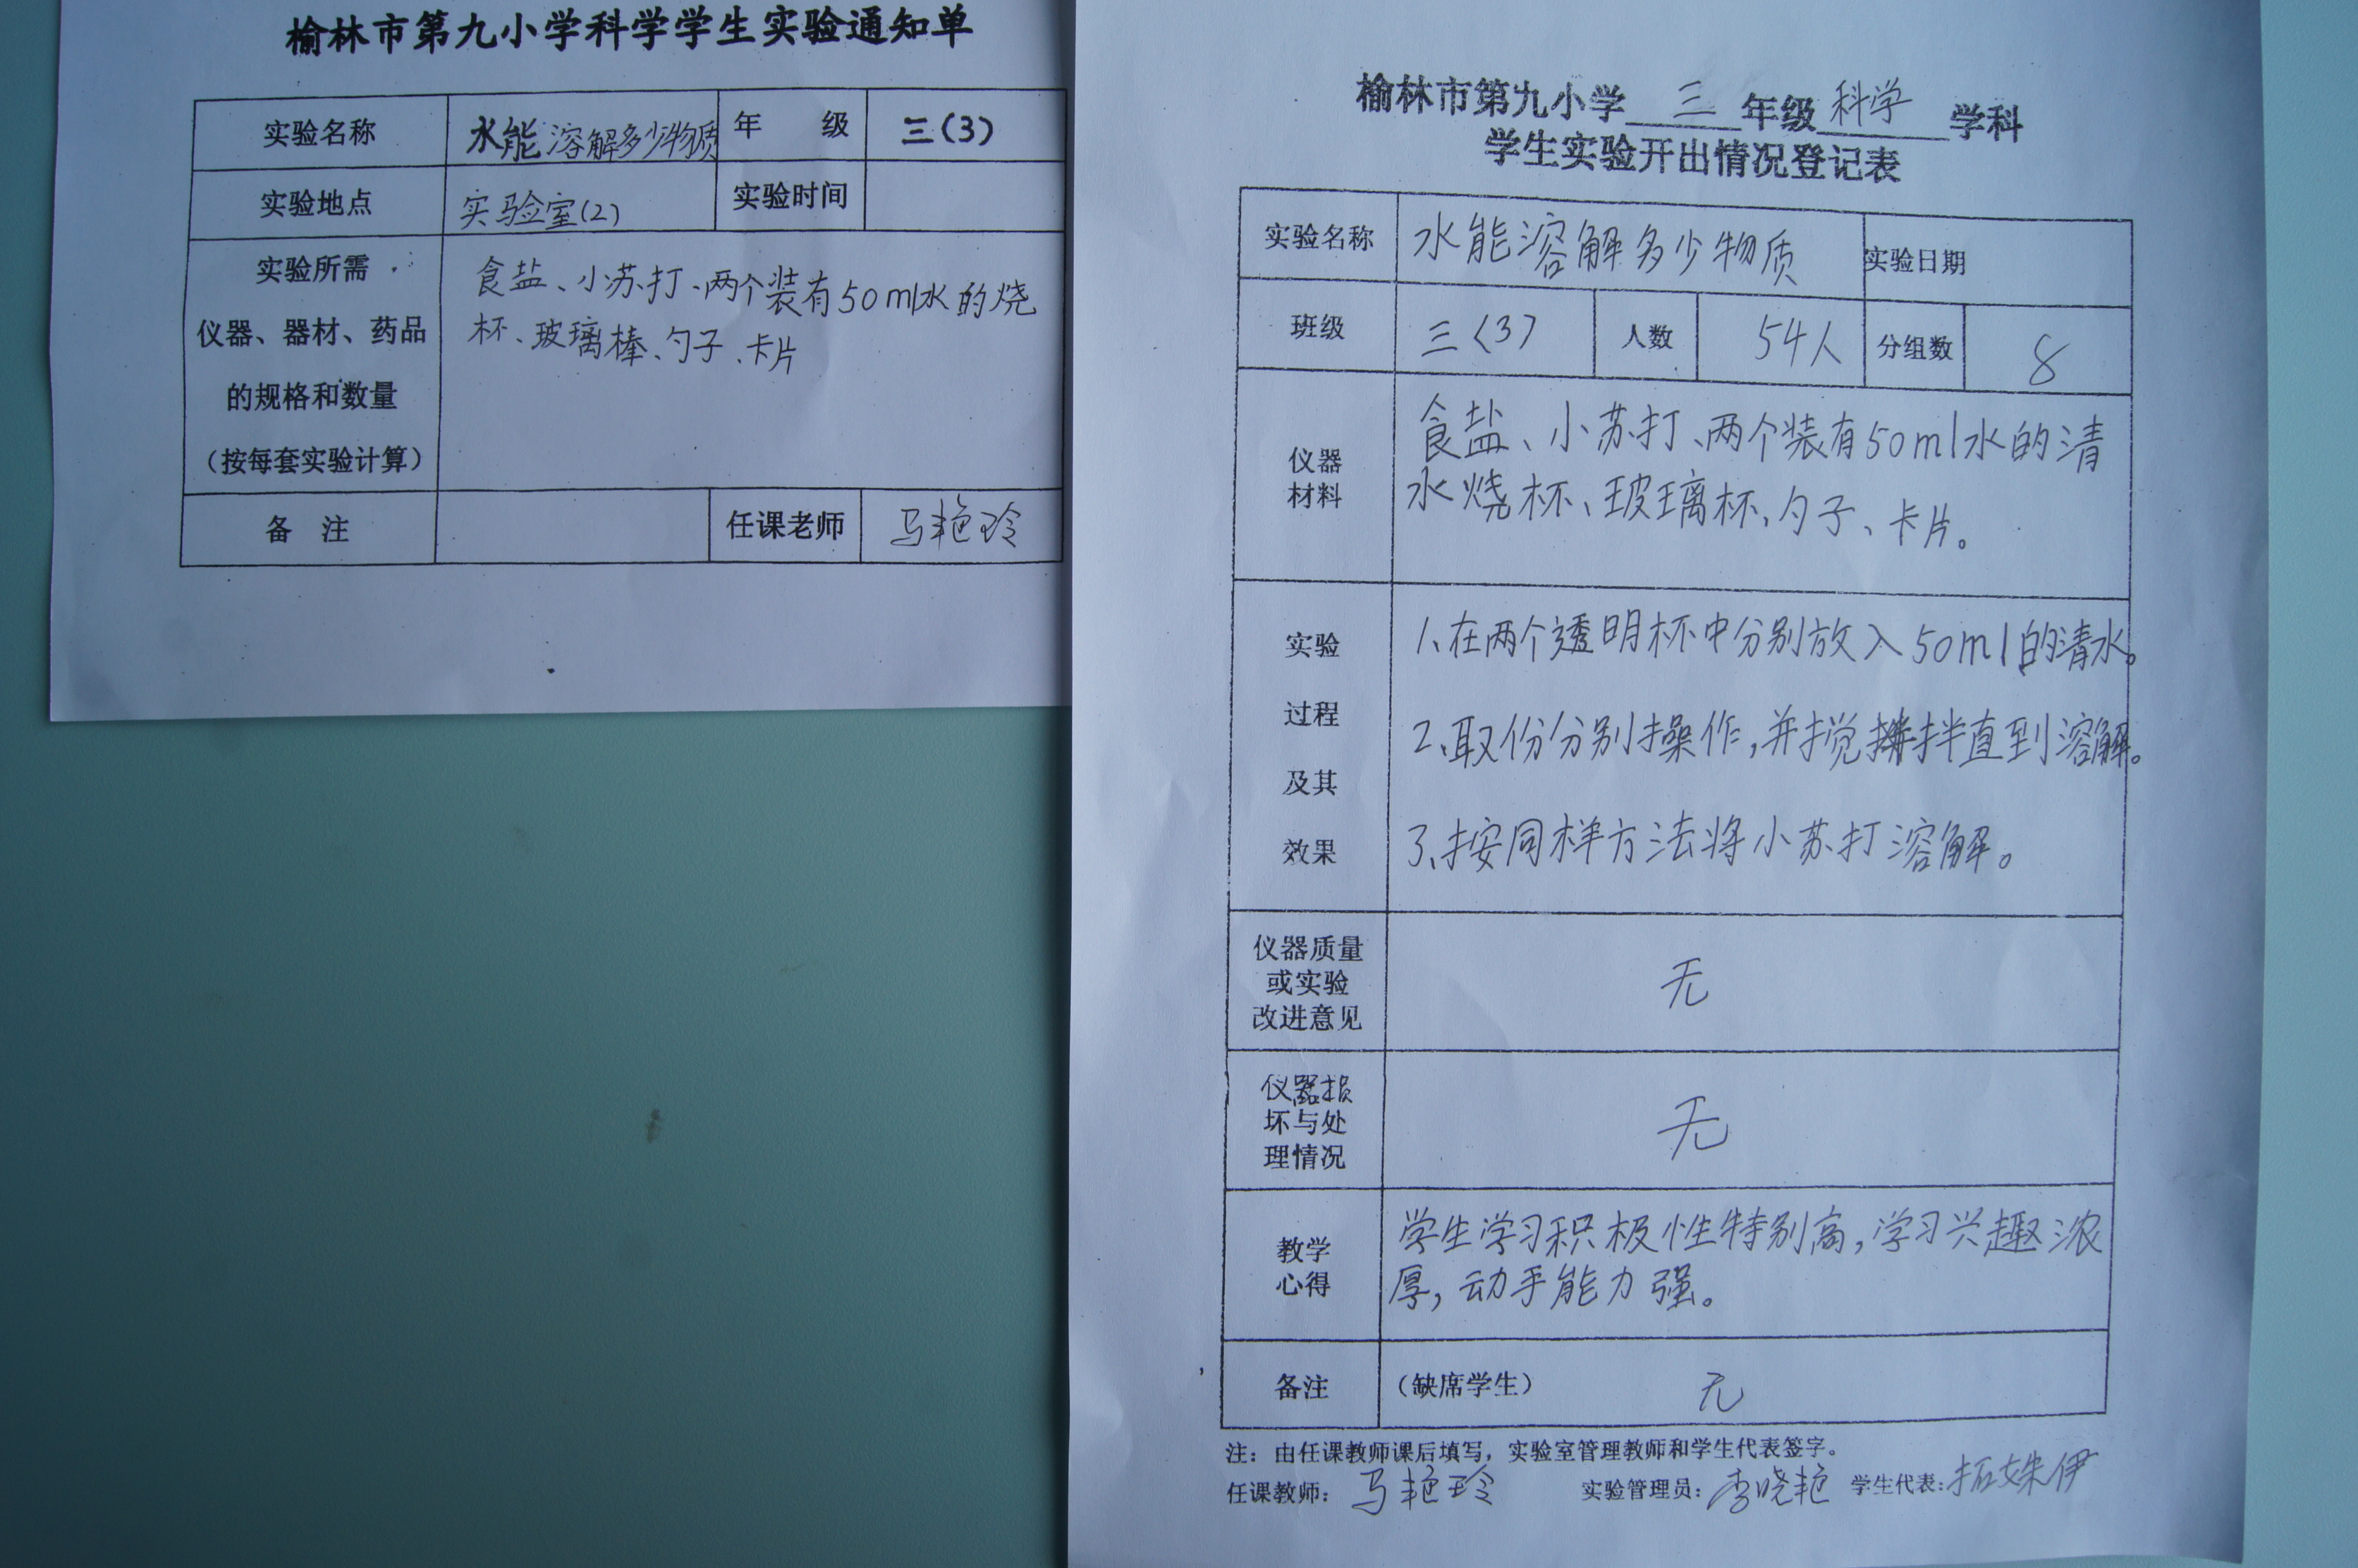 榆林市第九小学科学学生实验通知单
实验名称 水能溶解多少物质 年 级 三(3)
实验地点 实验室(2) 实验时间
实验所需
仪器、器材、药品
的规格和数量
(按每套实验计算)
食盐、小苏打、两个装有50ml水的烧
杯、玻璃棒、勺子、卡片
备 注 任课老师 马艳玲
榆林市第九小学 三 年级 科学 学科
学生实验开出情况登记表
实验名称 水能溶解多少物质 实验日期
班级 三(3) 人数 54人 分组数 8
仪器
材料
食盐、小苏打、两个装有50ml水的清
水烧杯、玻璃杯、勺子、卡片。
实验
过程
及其
效果
1、在两个透明杯中分别放入50ml的清水。
2、取份分别操作,并搅拌直到溶解。
3、按同样方法将小苏打溶解。
仪器质量
或实验
改进意见
无
仪器损
坏与处
理情况
无
教学
心得
学生学习积极性特别高,学习兴趣浓
厚,动手能力强。
备注 (缺席学生) 无
注:由任课教师课后填写,实验室管理教师和学生代表签字。
任课教师: 马艳玲 实验管理员: 李晓艳 学生代表: 拓姝伊